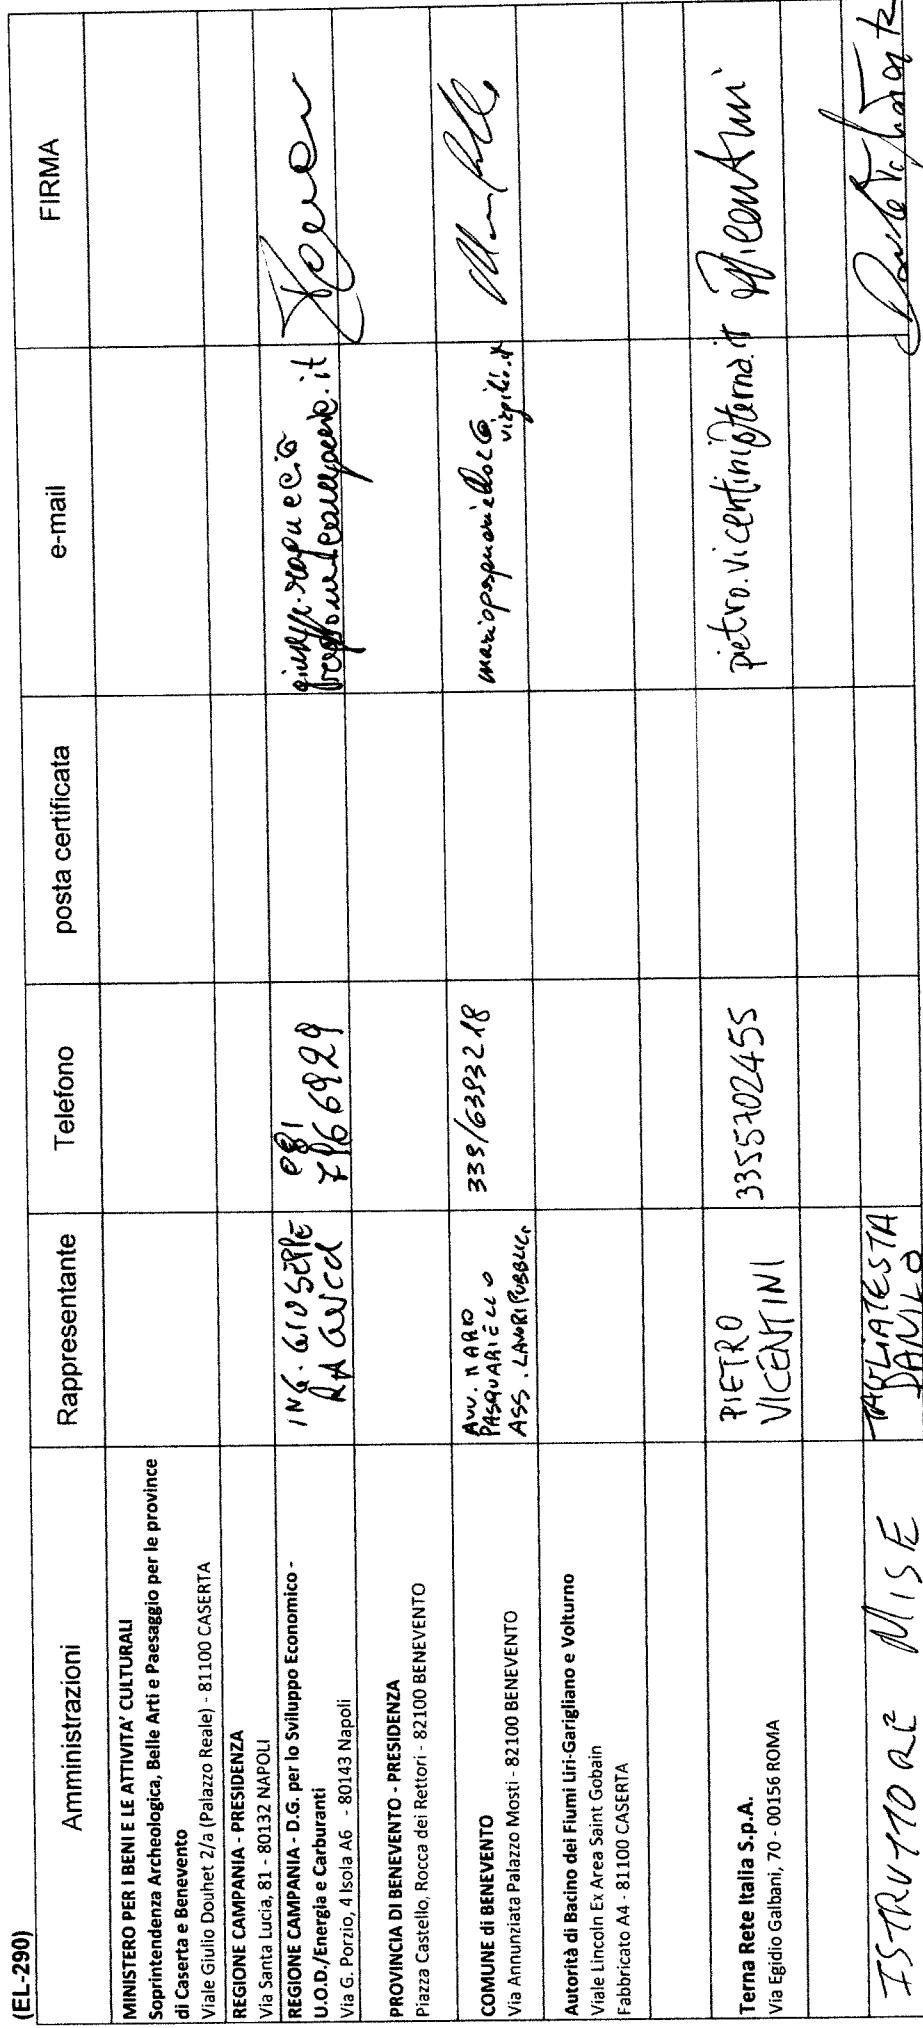 (EL-290)
Amministrazioni Rappresentante Telefono posta certificata e-mail FIRMA
MINISTERO PER I BENI E LE ATTIVITA' CULTURALI
Soprintendenza Archeologica, Belle Arti e Paesaggio per le province
di Caserta e Benevento
Viale Giulio Douhet 2/a (Palazzo Reale) - 81100 CASERTA
REGIONE CAMPANIA - PRESIDENZA
Via Santa Lucia, 81 - 80132 NAPOLI
REGIONE CAMPANIA - D.G. per lo Sviluppo Economico -
U.O.D./Energia e Carburanti
Via G. Porzio, 4 Isola A6 - 80143 Napoli
ING. GIUSEPPE
081
7966929
PROVINCIA DI BENEVENTO - PRESIDENZA
Piazza Castello, Rocca dei Rettori - 82100 BENEVENTO
COMUNE di BENEVENTO
Via Annunziata Palazzo Mosti - 82100 BENEVENTO
AVV. MARIO
PASQUARIELLO
ASS. LAVORI PUBBLICI
339/6393218
mariopasquariello2@
virgilio.it
Autorità di Bacino dei Fiumi Liri-Garigliano e Volturno
Viale Lincoln Ex Area Saint Gobain
Fabbricato A4 - 81100 CASERTA
Terna Rete Italia S.p.A.
Via Egidio Galbani, 70 - 00156 ROMA
PIETRO
VICENTINI
3355702455
pietro.vicentini@terna.it
PVicentini
ISTRUTTORE MISE
TAGLIATESTA
DANILO